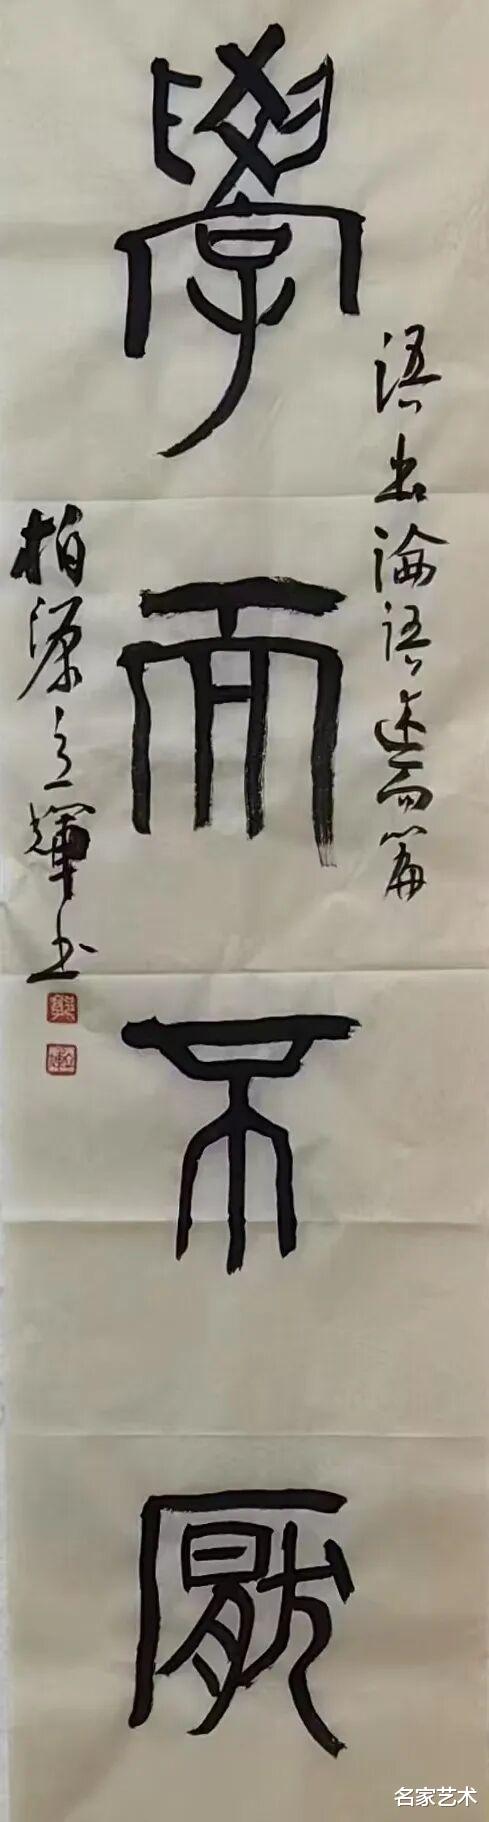 學而不厭
語出論語述而篇
柏源立輝書
名家艺术